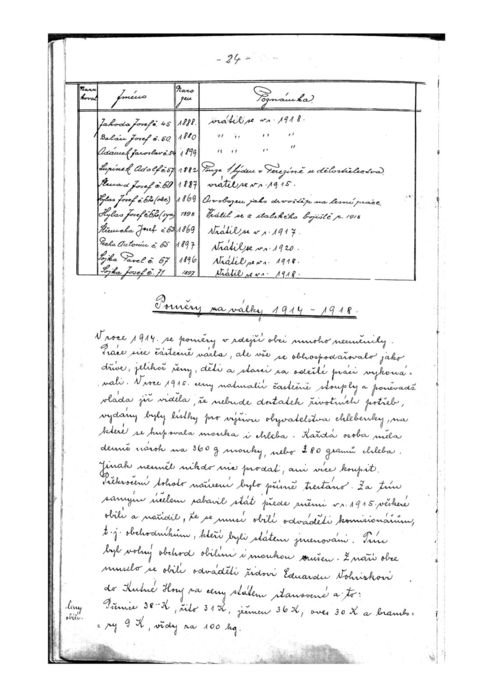 - 24 -
Jméno
Naro
zen
Poznámka
Jahoda Josef č. 45 1888. vrátil se v r. 1918.
Josef č. 50 1880 " " " "
Adámek Jaroslav č. 54 1899 " " "
Lupínek Adolf č. 57 1882 Pouze 1 týden v Terezíně u dělostřelectva
č. 60 1887 vrátil se v r. 1915.
1869 Osvobozen jako dřevoštěp na lesní práce
Hylas Josef 1898 Vrátil se z italského bojiště r. 1918
Josef č. 63 1869 Vrátil se v r. 1917.
Antonín č. 65 1897 Vrátil se v r. 1920.
Sojka Pavel č. 67 1896 Vrátil se v r. 1918.
Sojka Josef č. 71 1897 Vrátil se v r. 1918.
Poměry za války 1914 - 1918.
V roce 1914. se poměry v zdejší obci mnoho nezměnily.
Práce sice částečně vázla, ale vše se obhospodařovalo jako
dříve, jelikož ženy, děti a starci za odešlé práci vykoná-
vali. V roce 1915. ceny naturalií částečně stouply a poněvadž
vláda již viděla, že nebude dostatek životních potřeb,
vydány byly lístky pro výživu obyvatelstva chlebenky, na
které se kupovala mouka i chleba. Každá osoba měla
denně nárok na 360 g mouky, nebo 280 gramů chleba.
Jinak nesměl nikdo nic prodat, ani více koupit.
Překročení tohoto nařízení bylo přísně trestáno. Za tím
samým účelem zabavil stát přede žněmi v r. 1915, veškeré
obilí a nařídil, že se musí obilí odváděti komisionářům,
t. j. obchodníkům, kteří byli státem jmenováni. Tím
byl volný obchod obilím i moukou zrušen. Z naší obce
muselo se obilí odváděti židovi Eduardu Vohrískovi
do Kutné Hory za ceny státem stanovené a to:
ceny
obilí.
Pšenice 38 K, žito 31 K, ječmen 36 K, oves 30 K a brambo-
ry 9 K, vždy za 100 kg.